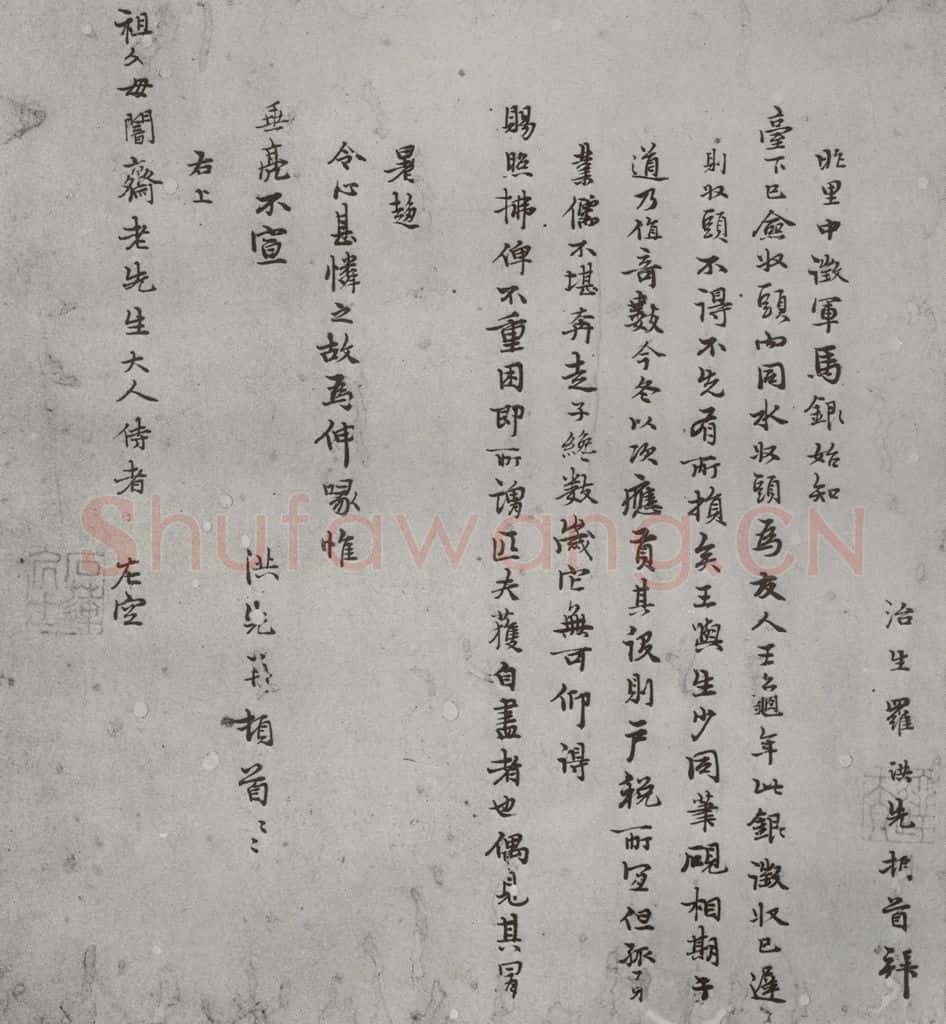 治生羅洪先頓首拜
昨里中徵軍馬銀始知
臺下已僉收頭內同水收頭爲友人王龜年此銀徵收已遲
則收頭不得不先有所損矣王與生少同筆硯相期于
道乃值奇數今冬以次應貢其役則戶稅所宜但孤貧
業儒不堪奔走予終數歲它無可仰得
賜照拂俾不重困即所謂匹夫獲自盡者也偶見其冒
暑趨
令心甚憐之故爲伸喙惟
垂亮不宣
洪先頓首
右上
祖父母誾齋老先生大人侍者 左空
Shufawang.CN